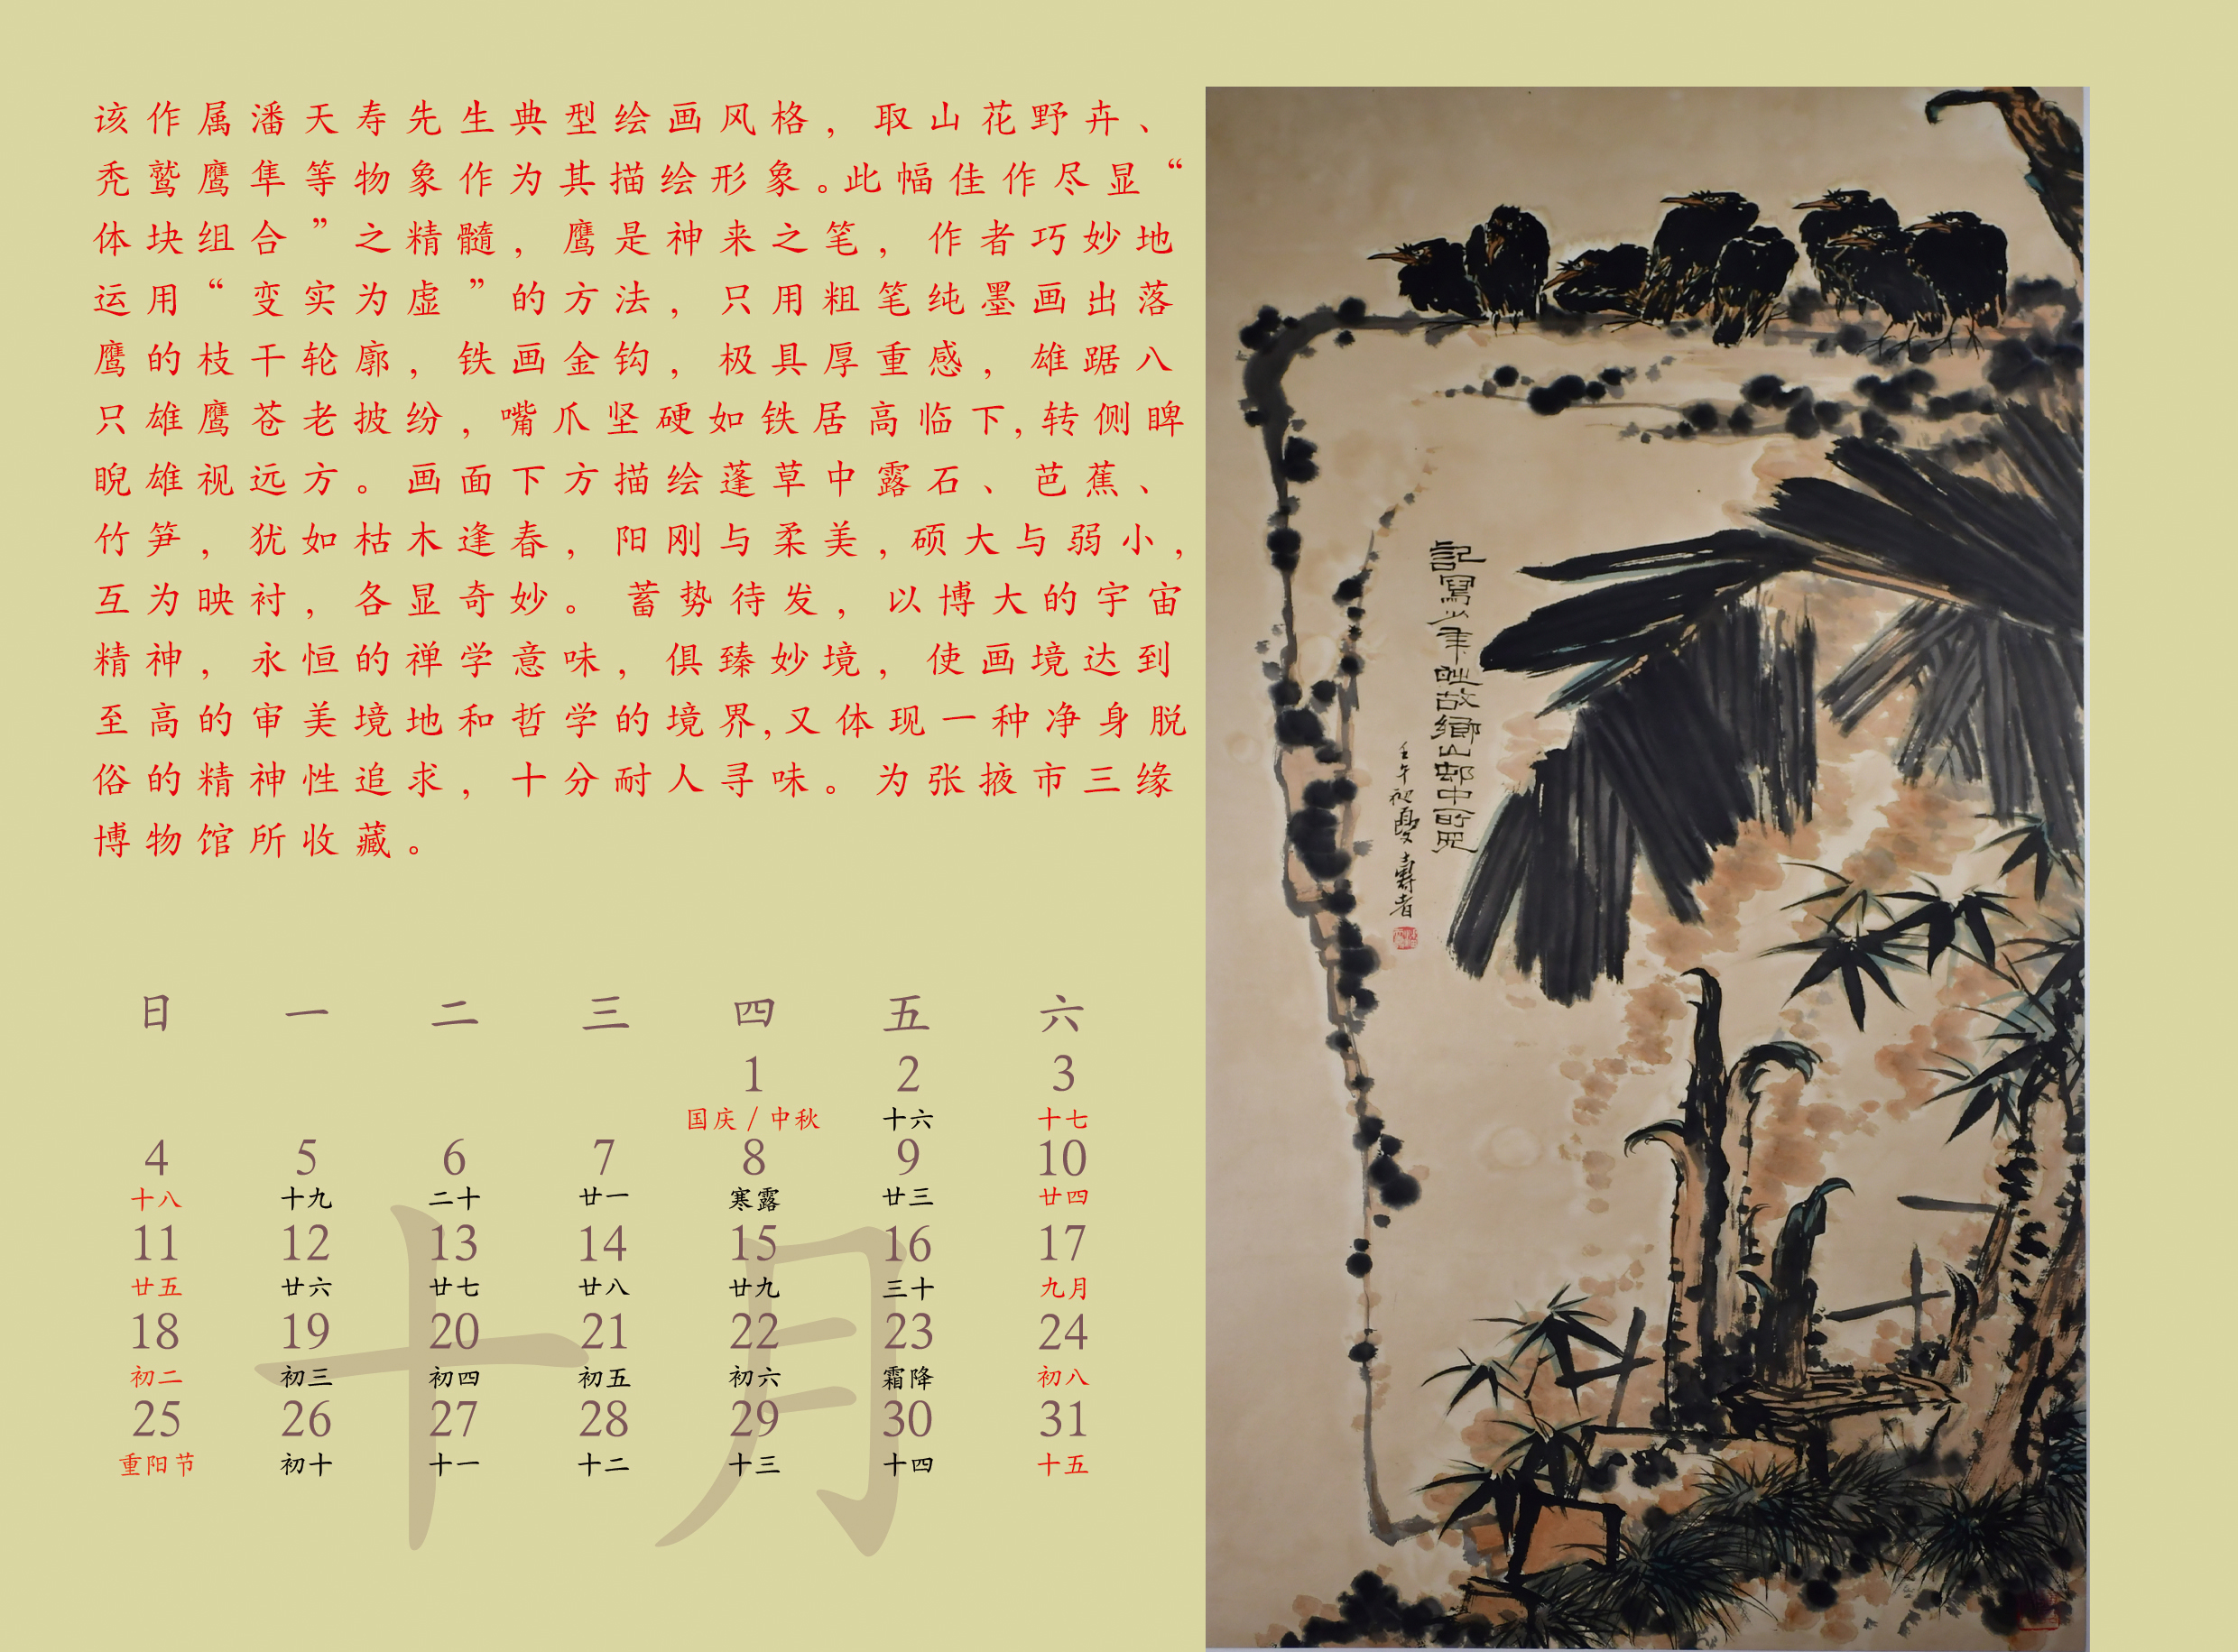 该作属潘天寿先生典型绘画风格，取山花野卉、
秃鹫鹰隼等物象作为其描绘形象。此幅佳作尽显“
体块组合”之精髓，鹰是神来之笔，作者巧妙地
运用“变实为虚”的方法，只用粗笔纯墨画出落
鹰的枝干轮廓，铁画金钩，极具厚重感，雄踞八
只雄鹰苍老披纷，嘴爪坚硬如铁居高临下,转侧睥
睨雄视远方。画面下方描绘蓬草中露石、芭蕉、
竹笋，犹如枯木逢春，阳刚与柔美,硕大与弱小,
互为映衬，各显奇妙。蓄势待发，以博大的宇宙
精神，永恒的禅学意味，俱臻妙境，使画境达到
至高的审美境地和哲学的境界,又体现一种净身脱
俗的精神性追求，十分耐人寻味。为张掖市三缘
博物馆所收藏。
日 一 二 三 四 五 六
1 2 3
国庆/中秋 十六 十七
4 5 6 7 8 9 10
十八 十九 二十 廿一 寒露 廿三 廿四
11 12 13 14 15 16 17
廿五 廿六 廿七 廿八 廿九 三十 九月
18 19 20 21 22 23 24
初二 初三 初四 初五 初六 霜降 初八
25 26 27 28 29 30 31
重阳节 初十 十一 十二 十三 十四 十五
十月
記寫少年時故鄉山邨中所見
壬午初夏壽者